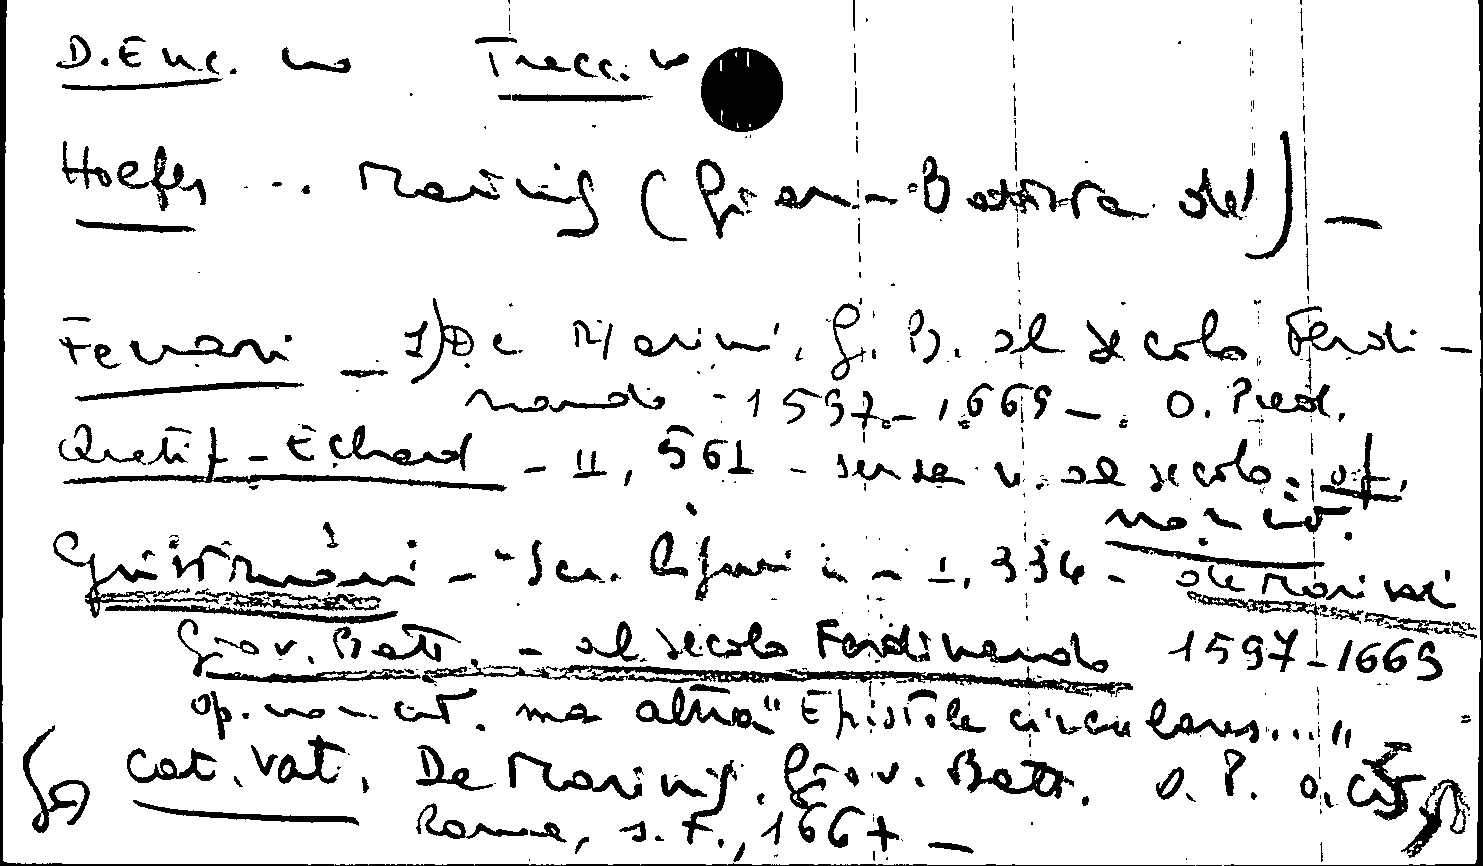 D. Enc. no Trecc. no
Hoefer ... Marinis (Gian-Battista de') —
Ferrari — 1) De Marini, G. B. al secolo Ferdi-
nando - 1597 - 1669 - . O. Pred.
Quetif - Echard - II, 561 - senza n. al secolo: op.
non cit.
Giustiniani - "Scr. liguri" - I, 334 - de Marini
Giov. Batt. - al secolo Ferdinando 1597-1669
op. non cit. ma altra "Epistole circulares..."
Cat. Vat. De Marinis, Giov. Batt. O. P. o. cit.
Roma, s. t., 1667 —